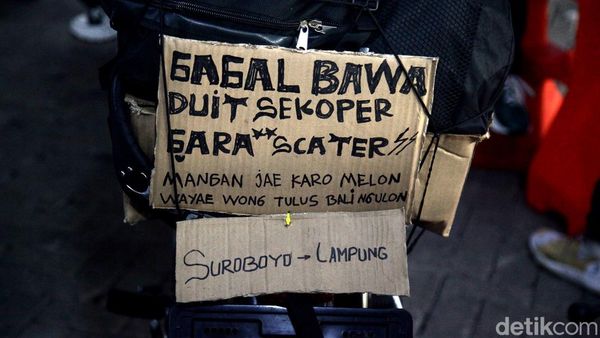 GAGAL BAWA
DUIT SEKOPER
GARA** SCATER⚡
MANGAN JAE KARO MELON
WAYAE WONG TULUS BALI NGULON
SUROBOYO → LAMPUNG
detikcom